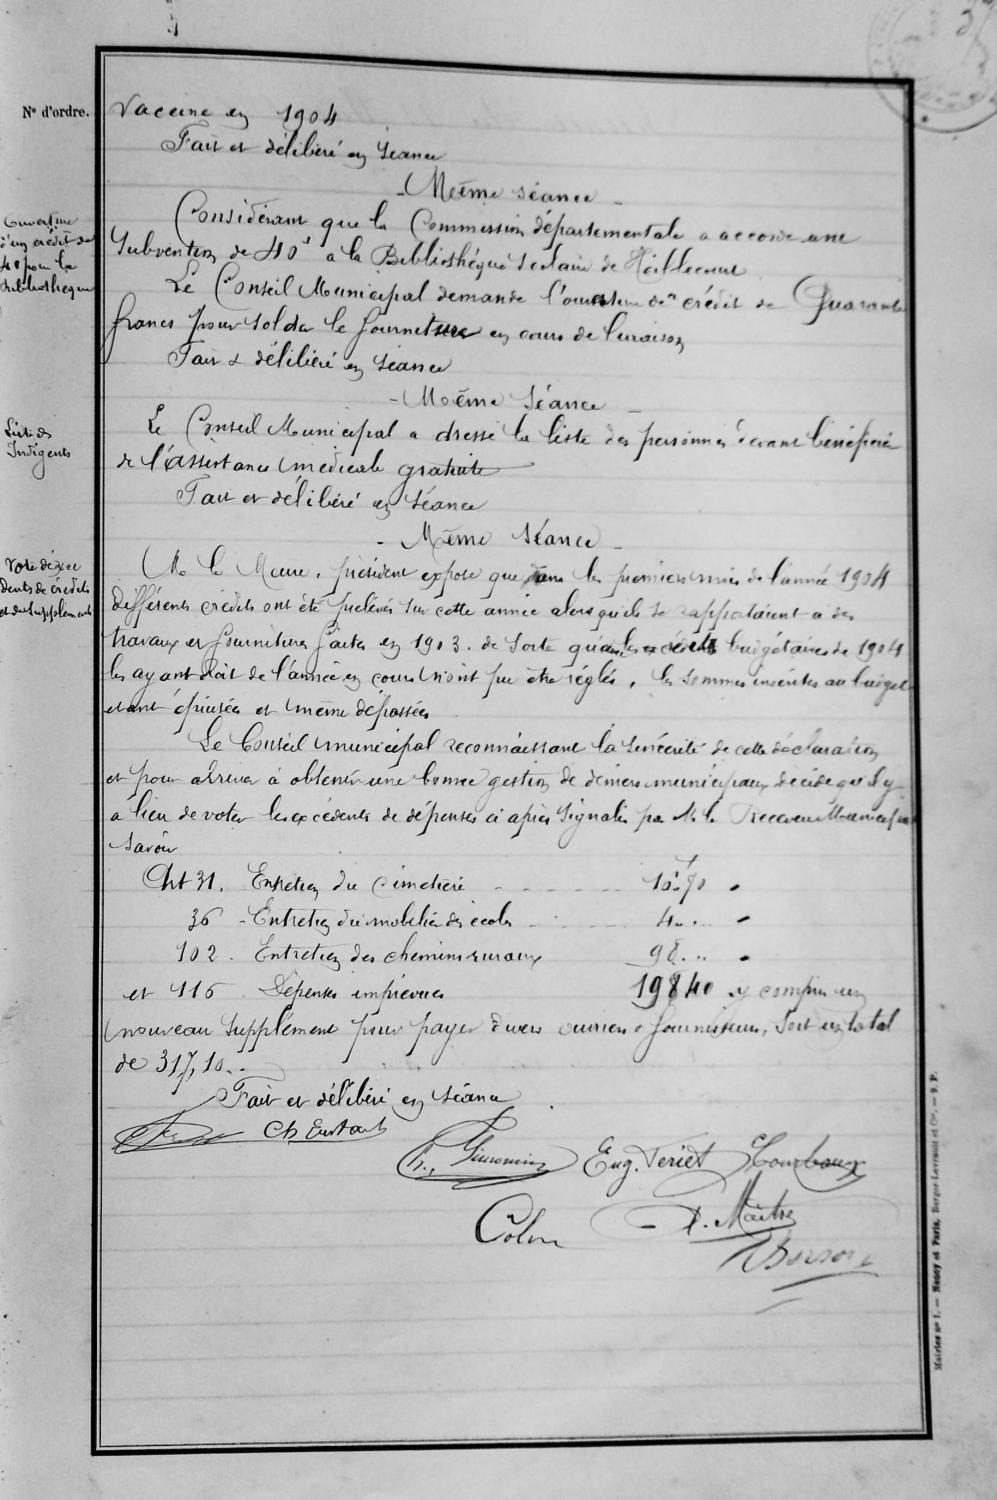 Nº d'ordre.
Vaccine en 1904
Fait et délibéré en séance
- Même séance -
Ouverture
d'un crédit de
40 f pour la
bibliothèque
Considérant que la Commission départementale a accordé une
subvention de 40 f à la Bibliothèque scolaire de Haillecourt
Le Conseil Municipal demande l'ouverture d'un crédit de Quarante
francs pour solder le fourniture en cours de livraison
Fait & délibéré en séance
- Même Séance -
Liste des
Indigents
Le Conseil Municipal a dressé la liste des personnes devant bénéficier
de l'Assistance médicale gratuite
Fait et délibéré en séance
- Même séance -
Vote d'excé
dents de crédits
et de suppléments
M. le Maire, président expose que dans les premiers mois de l'année 1904
différents crédits ont été prélevés sur cette année alors qu'ils se rapportaient à des
travaux et fournitures faites en 1903. de sorte que les crédits budgétaires de 1904
les ayant droit de l'année en cours n'ont pu être réglés, les sommes inscrites au budget
étant épuisées et même dépassées
Le Conseil municipal reconnaissant la sincérité de cette déclaration
et pour arriver à obtenir une bonne gestion de deniers municipaux décide qu'il y
a lieu de voter les excédents de dépenses ci après signalés par M. le Receveur Municipal
savoir
Art 31. Entretien du cimetière - - - - - 16 f. 70
36 - Entretien du mobilier des écoles - - - 4. ...
102. Entretien des chemins ruraux 98. ..
et 116 Dépenses imprévues 198 40 y compris un
nouveau supplément pour payer divers ouvriers & fournisseurs, Soit un total
de 317,10..
Fait et délibéré en séance
Eug. Feriet
Colin
D. Maitre
Mairies nº 1. — Nancy et Paris, Berger-Levrault et Cie. — 9. P.